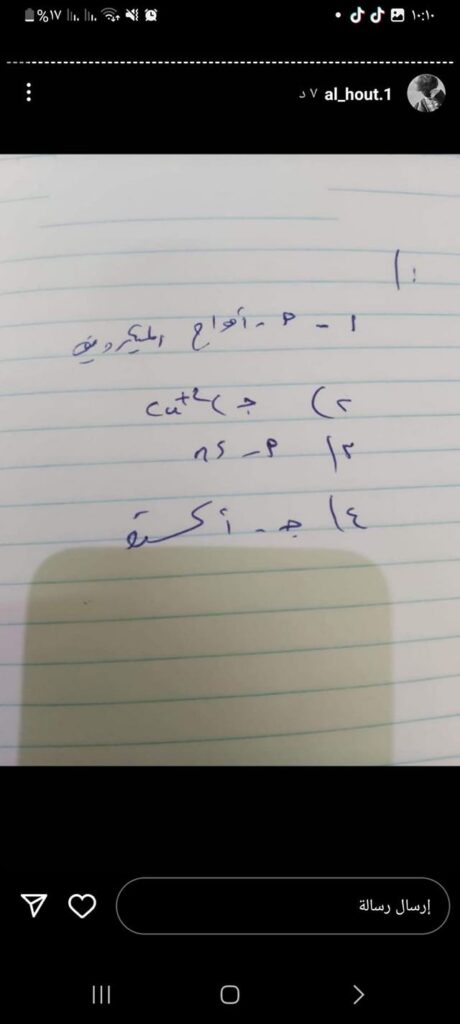 ١٠:١٠
%١٧
al_hout.1 ٧ د
١|
١ - م - أمواج الميكرويف
٢) ج) Cu+2
٣| م - ns
٤| ج - أكسدة
إرسال رسالة